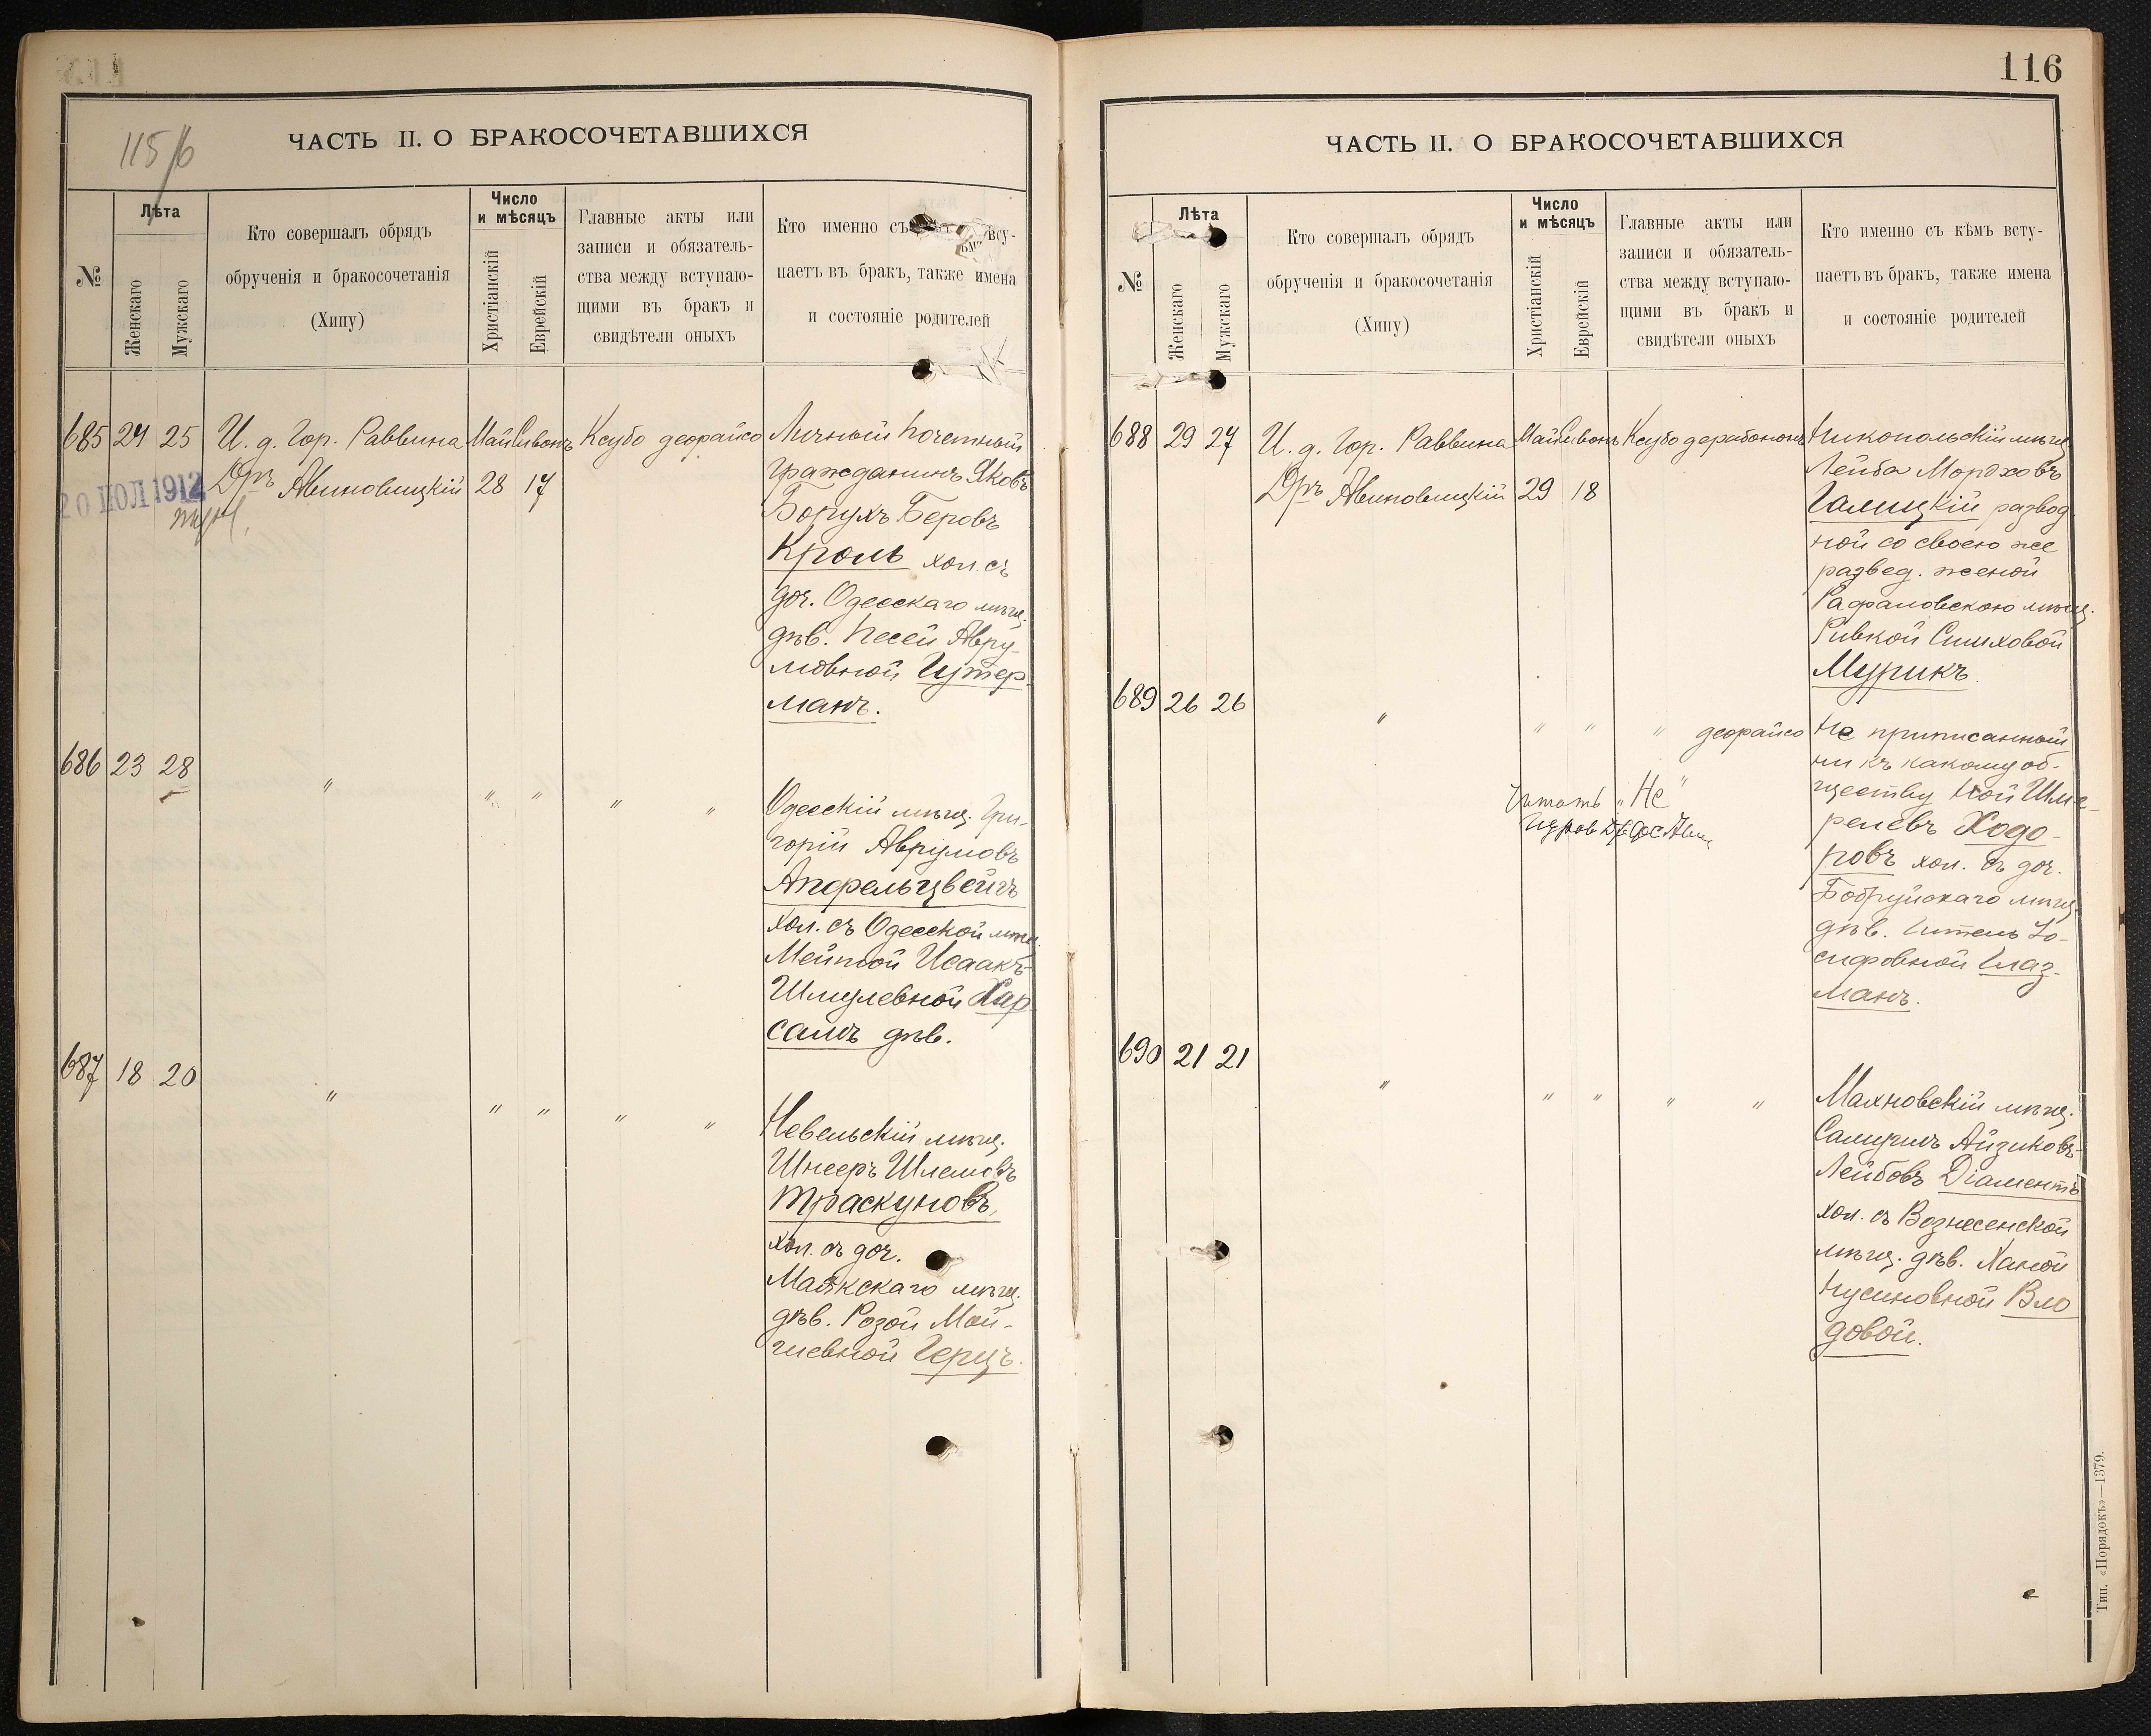 115/6
ЧАСТЬ II. О БРАКОСОЧЕТАВШИХСЯ
№
Лѣта
Женскаго
Мужскаго
Кто совершалъ обрядъ
обрученія и бракосочетанія
(Хипу)
Число
и мѣсяцъ
Христіанскій
Еврейскій
Главные акты или
записи и обязатель-
ства между вступаю-
щими въ бракъ и
свидѣтели оныхъ
Кто именно съ всту-
паетъ въ бракъ, также имена
и состояніе родителей
685 24 25 И. д. Гор. Раввина Май Сивонъ Ксубо деорайсо Личный Почетный
20 ІЮЛ 1912 Дръ Авиновицкій 28 17 гражданинъ Яковъ
Борухъ Беровъ
Кроль хол. съ
доч. Одесскаго мѣщ.
дѣв. Песей Авру-
мовной Гутер-
манъ.
686 23 28 " " " " " Одесскій мѣщ. Гри-
горій Аврумовъ
Апфельцвейгъ
хол. съ Одесской мѣщ.
Мейтой Исаакъ-
Шмулевной Хар
самъ дѣв.
687 18 20 " " " " " Невельскій мѣщ.
Шнееръ Шлемовъ
Траскуновъ,
хол. съ доч.
Маякскаго мѣщ.
дѣв. Розой Мой-
шевной Герцъ.
116
ЧАСТЬ II. О БРАКОСОЧЕТАВШИХСЯ
№
Лѣта
Женскаго
Мужскаго
Кто совершалъ обрядъ
обрученія и бракосочетанія
(Хипу)
Число
и мѣсяцъ
Христіанскій
Еврейскій
Главные акты или
записи и обязатель-
ства между вступаю-
щими въ бракъ и
свидѣтели оныхъ
Кто именно съ кѣмъ всту-
паетъ въ бракъ, также имена
и состояніе родителей
688 29 27 И. д. Гор. Раввина Май Сивонъ Ксубо дерабононъ Никопольскій мѣщ.
Дръ Авиновицкій 29 18 Лейба Мордховъ
Галицкій развод
ной со своею же
развед. женой
Рафаловскою мѣщ.
Ривкой Симховой
Мурикъ.
689 26 26 " " " " деорайсо Не приписанный
ни къ какому об-
ществу Ной Шме-
релевъ Ходо-
ровъ хол. съ доч.
Бобруйскаго мѣщ.
дѣв. Іо-
сифовной Глаз-
манъ.
Читать „Не"
690 21 21 " " " " " Махновскій мѣщ.
Самуилъ Айзиковъ-
Лейбовъ Діаментъ
хол. съ Вознесенской
мѣщ. дѣв. Ханой
Нусиновной Вло
довой.
Тип. «Порядокъ»—1379.